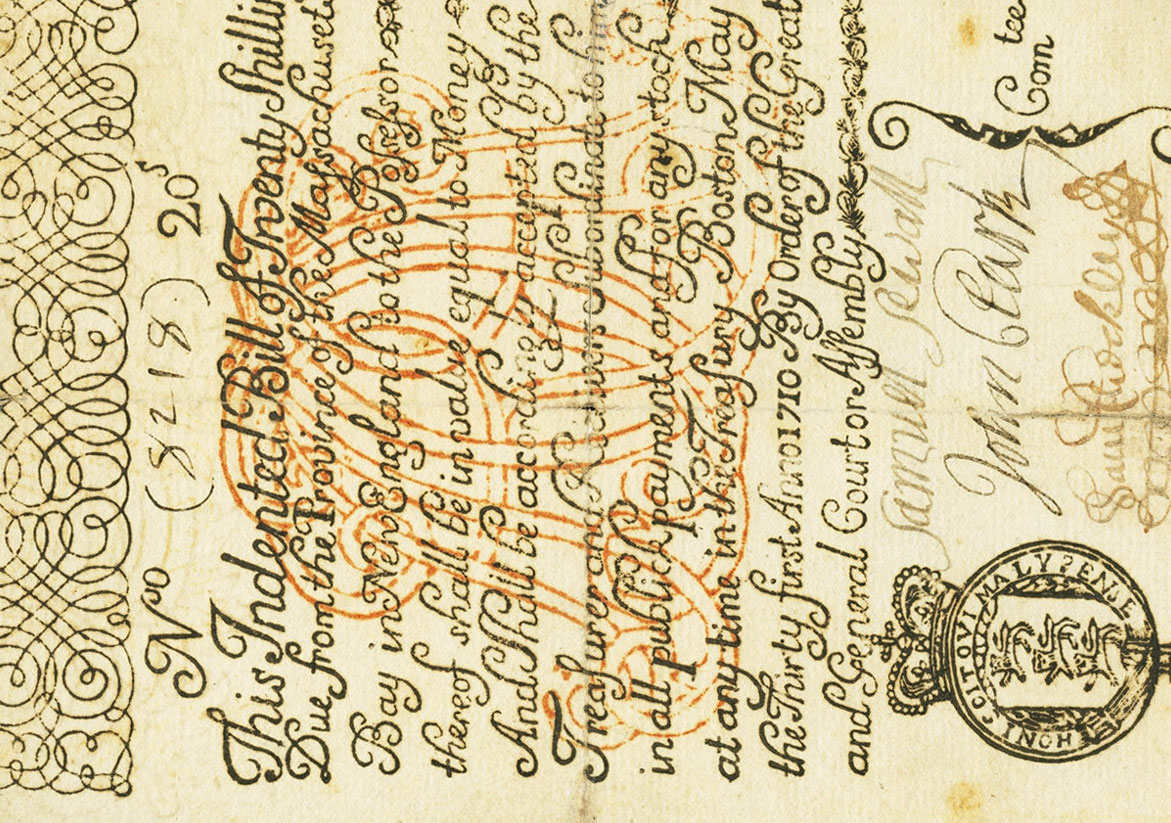 Nº (8218) 20s
This Indented Bill of Twenty Shillin
Due from the Province of the Massachuset
Bay in New England to the Possessor
thereof shall be in value equal to Money
And Shall be accordingly accepted by the
Treasurer and Receivers subordinate to him
in all publick payments and for any Stock
at any time in the Treasury Boston May
the Thirty first Anno 1710 By Order of the Great
and General Court or Assembly
Samuel Sewall
John Clark
Com tee
HONI SOIT QVI MAL Y PENSE